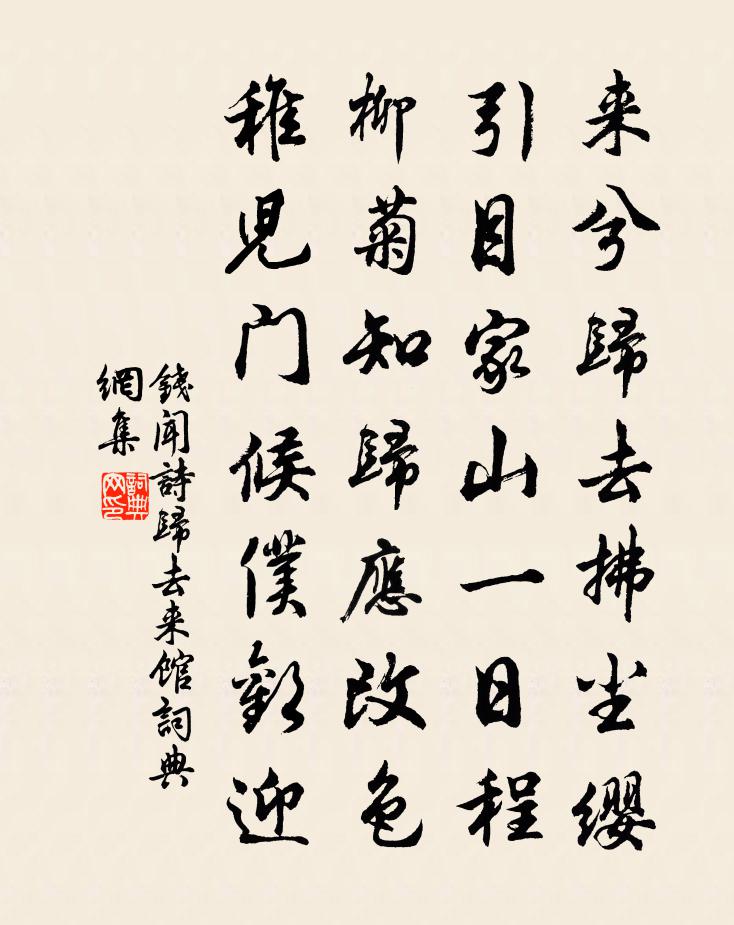 来兮歸去拂尘纓
引目家山一日程
柳菊知歸應改色
稚児门候僕歡迎
錢聞詩歸去来館詞典
網集
詞典
网印